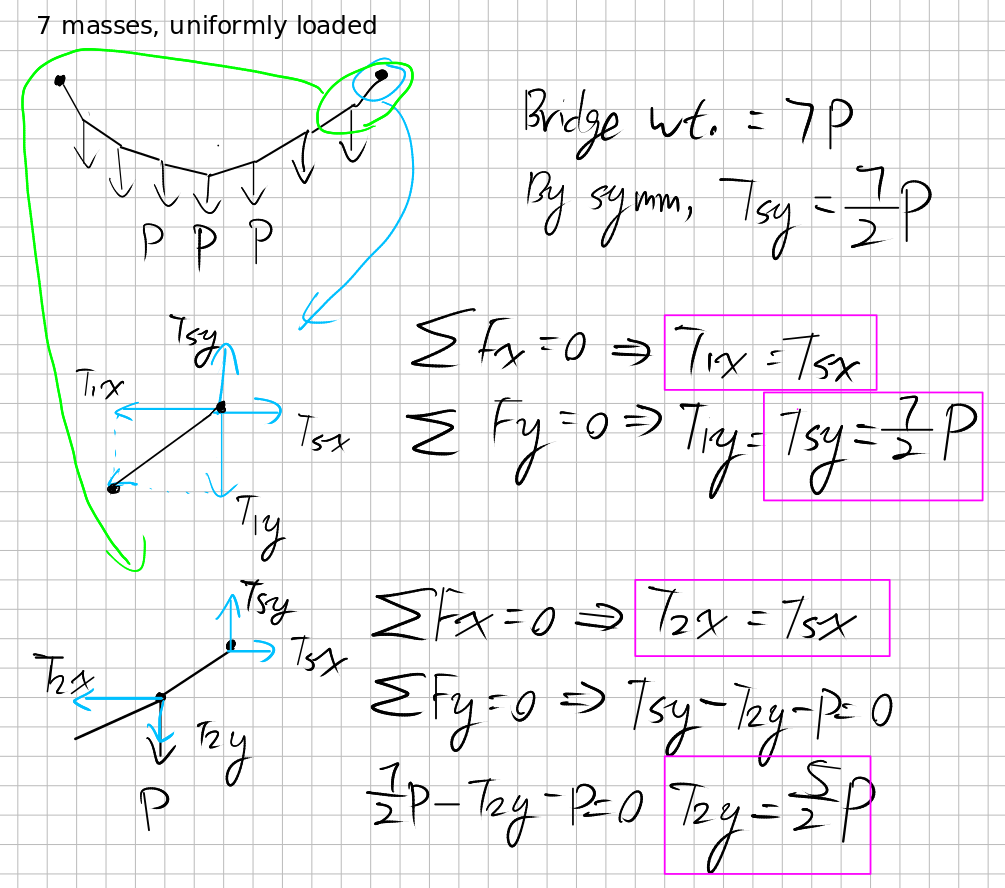 7 masses, uniformly loaded
Bridge wt. = 7P
By symm, Tsy = 7/2 P
P P P
Tsy
T1x
Tsx
T1y
ΣFx = 0 ⇒ T1x = Tsx
ΣFy = 0 ⇒ T1y = Tsy = 7/2 P
Tsy
Tsx
T2x
T2y
P
ΣFx = 0 ⇒ T2x = Tsx
ΣFy = 0 ⇒ Tsy - T2y - P = 0
7/2 P - T2y - P = 0 T2y = 5/2 P